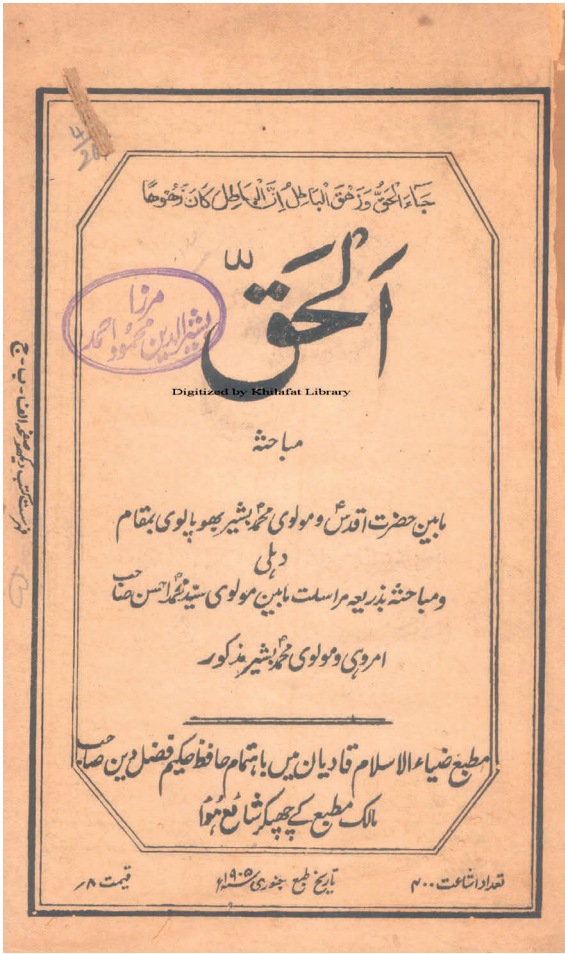 جَاءَ الْحَقُّ وَزَهَقَ الْبَاطِلُ اِنَّ الْبَاطِلَ كَانَ زَهُوقًا
اَلْحَقّ
مرزا
بشیر الدین محمود احمد
Digitized by Khilafat Library
مباحثہ
مابین حضرت اقدسؑ و مولوی محمدؐ بشیر بھوپالوی بمقام
دہلی
و مباحثہ بذریعہ مراسلت مابین مولوی سید محمدؐ احسن صاحب
امروہی و مولوی محمدؐ بشیر مذکور
مطبع ضیاء الاسلام قادیان میں باہتمام حافظ حکیم فضل دین صاحب
مالک مطبع کے چھپکر شائع ہؤا
تعداد اشاعت ۴۰۰
تاریخ طبع جنوری ۱۹۰۵ء
قیمت ۸؍
فہرست کتب دیکھو صفحہ الف - ب - ج